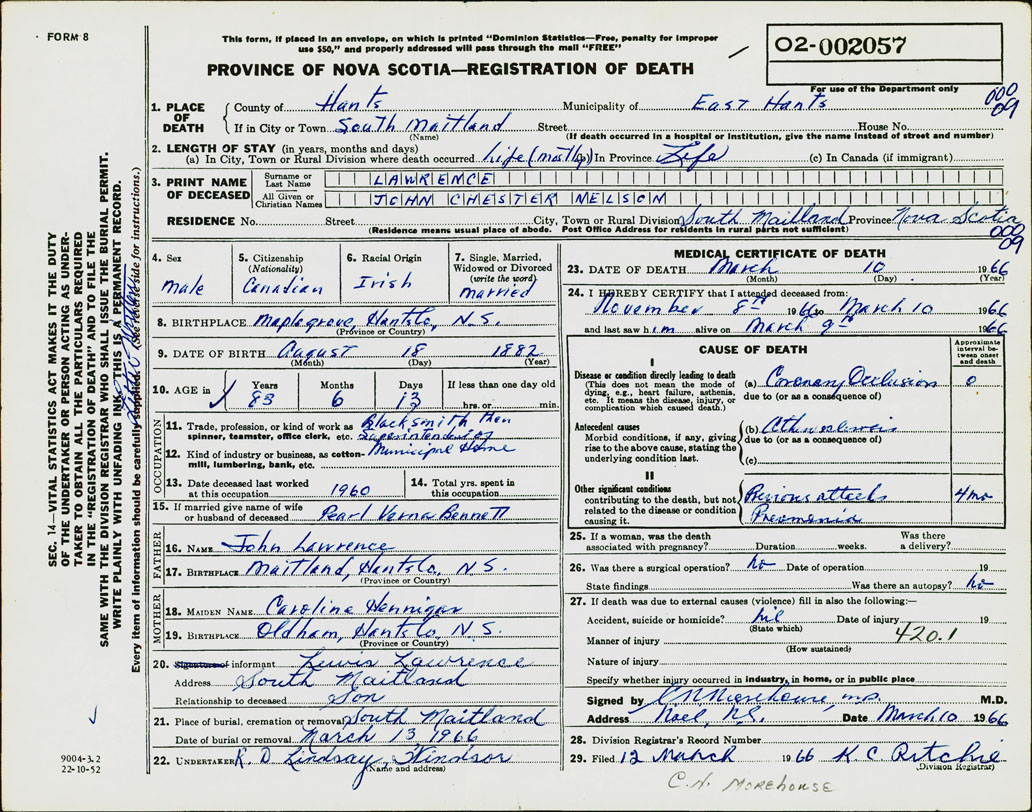 FORM 8
This form, if placed in an envelope, on which is printed “Dominion Statistics—Free, penalty for improper
use $50,” and properly addressed will pass through the mail “FREE”
PROVINCE OF NOVA SCOTIA—REGISTRATION OF DEATH
02-002057
For use of the Department only
000
09
1. PLACE OF DEATH
County of Hants Municipality of East Hants
If in City or Town South Maitland Street House No.
(Name) (If death occurred in a hospital or institution, give the name instead of street and number)
2. LENGTH OF STAY (in years, months and days)
(a) In City, Town or Rural Division where death occurred Life (mostly) (b) In Province Life (c) In Canada (if immigrant)
3. PRINT NAME OF DECEASED
Surname or Last Name LAWRENCE
All Given or Christian Names JOHN CHESTER NELSON
RESIDENCE No. Street City, Town or Rural Division South Maitland Province Nova Scotia
(Residence means usual place of abode. Post Office Address for residents in rural parts not sufficient)
000
09
4. Sex
male
5. Citizenship
(Nationality)
Canadian
6. Racial Origin
Irish
7. Single, Married,
Widowed or Divorced
(write the word)
married
8. BIRTHPLACE Maplegrove, Hants Co, N.S.
(Province or Country)
9. DATE OF BIRTH August 18 1882
(Month) (Day) (Year)
10. AGE in
Years Months Days If less than one day old
83 6 13 hrs. or min.
OCCUPATION
11. Trade, profession, or kind of work as
spinner, teamster, office clerk, etc.
Blacksmith then
Superintendent of
12. Kind of industry or business, as cotton-
mill, lumbering, bank, etc.
Municipal Home
13. Date deceased last worked
at this occupation 1960
14. Total yrs. spent in
this occupation
15. If married give name of wife
or husband of deceased Pearl Verna Bennett
FATHER
16. NAME John Lawrence
17. BIRTHPLACE Maitland, Hants Co, N.S.
(Province or Country)
MOTHER
18. MAIDEN NAME Caroline Hennigar
19. BIRTHPLACE Oldham, Hants Co, N.S.
(Province or Country)
20. Signature of informant Lewis Lawrence
Address South Maitland
Relationship to deceased Son
21. Place of burial, cremation or removal South Maitland
Date of burial or removal March 13 1966
22. UNDERTAKER K. D Lindsay, Windsor
(Name and address)
MEDICAL CERTIFICATE OF DEATH
23. DATE OF DEATH March 10 1966
(Month) (Day) (Year)
24. I HEREBY CERTIFY that I attended deceased from:
November 8th 1966 to March 10 1966
and last saw him alive on March 9th 1966
CAUSE OF DEATH
Approximate
interval be-
tween onset
and death
I
Disease or condition directly leading to death
(This does not mean the mode of
dying, e.g., heart failure, asthenia,
etc. It means the disease, injury, or
complication which caused death.)
(a) Coronary Occlusion 0
due to (or as a consequence of)
Antecedent causes
Morbid conditions, if any, giving
rise to the above cause, stating the
underlying condition last.
(b)
due to (or as a consequence of)
(c)
II
Other significant conditions
contributing to the death, but not
related to the disease or condition
causing it.
Previous attacks 4 mo
Pneumonia
25. If a woman, was the death
associated with pregnancy? Duration weeks. Was there
a delivery?
26. Was there a surgical operation? no Date of operation 19
State findings Was there an autopsy? no
27. If death was due to external causes (violence) fill in also the following:—
Accident, suicide or homicide? nil Date of injury 19
(State which)
420.1
Manner of injury
(How sustained)
Nature of injury
Specify whether injury occurred in industry, in home, or in public place
Signed by C N Morehouse, m.d. M.D.
Address Noel, N.S. Date March 10 1966
28. Division Registrar's Record Number
29. Filed 12 March 1966 K. C Ritchie
(Division Registrar)
C. N. MOREHOUSE
SEC. 14—VITAL STATISTICS ACT MAKES IT THE DUTY
OF THE UNDERTAKER OR PERSON ACTING AS UNDER-
TAKER TO OBTAIN ALL THE PARTICULARS REQUIRED
IN THE “REGISTRATION OF DEATH” AND TO FILE THE
SAME WITH THE DIVISION REGISTRAR WHO SHALL ISSUE THE BURIAL PERMIT.
WRITE PLAINLY WITH UNFADING INK—THIS IS A PERMANENT RECORD.
Every item of information should be carefully supplied. (See reverse side for instructions.)
9004-3.2
22-10-52